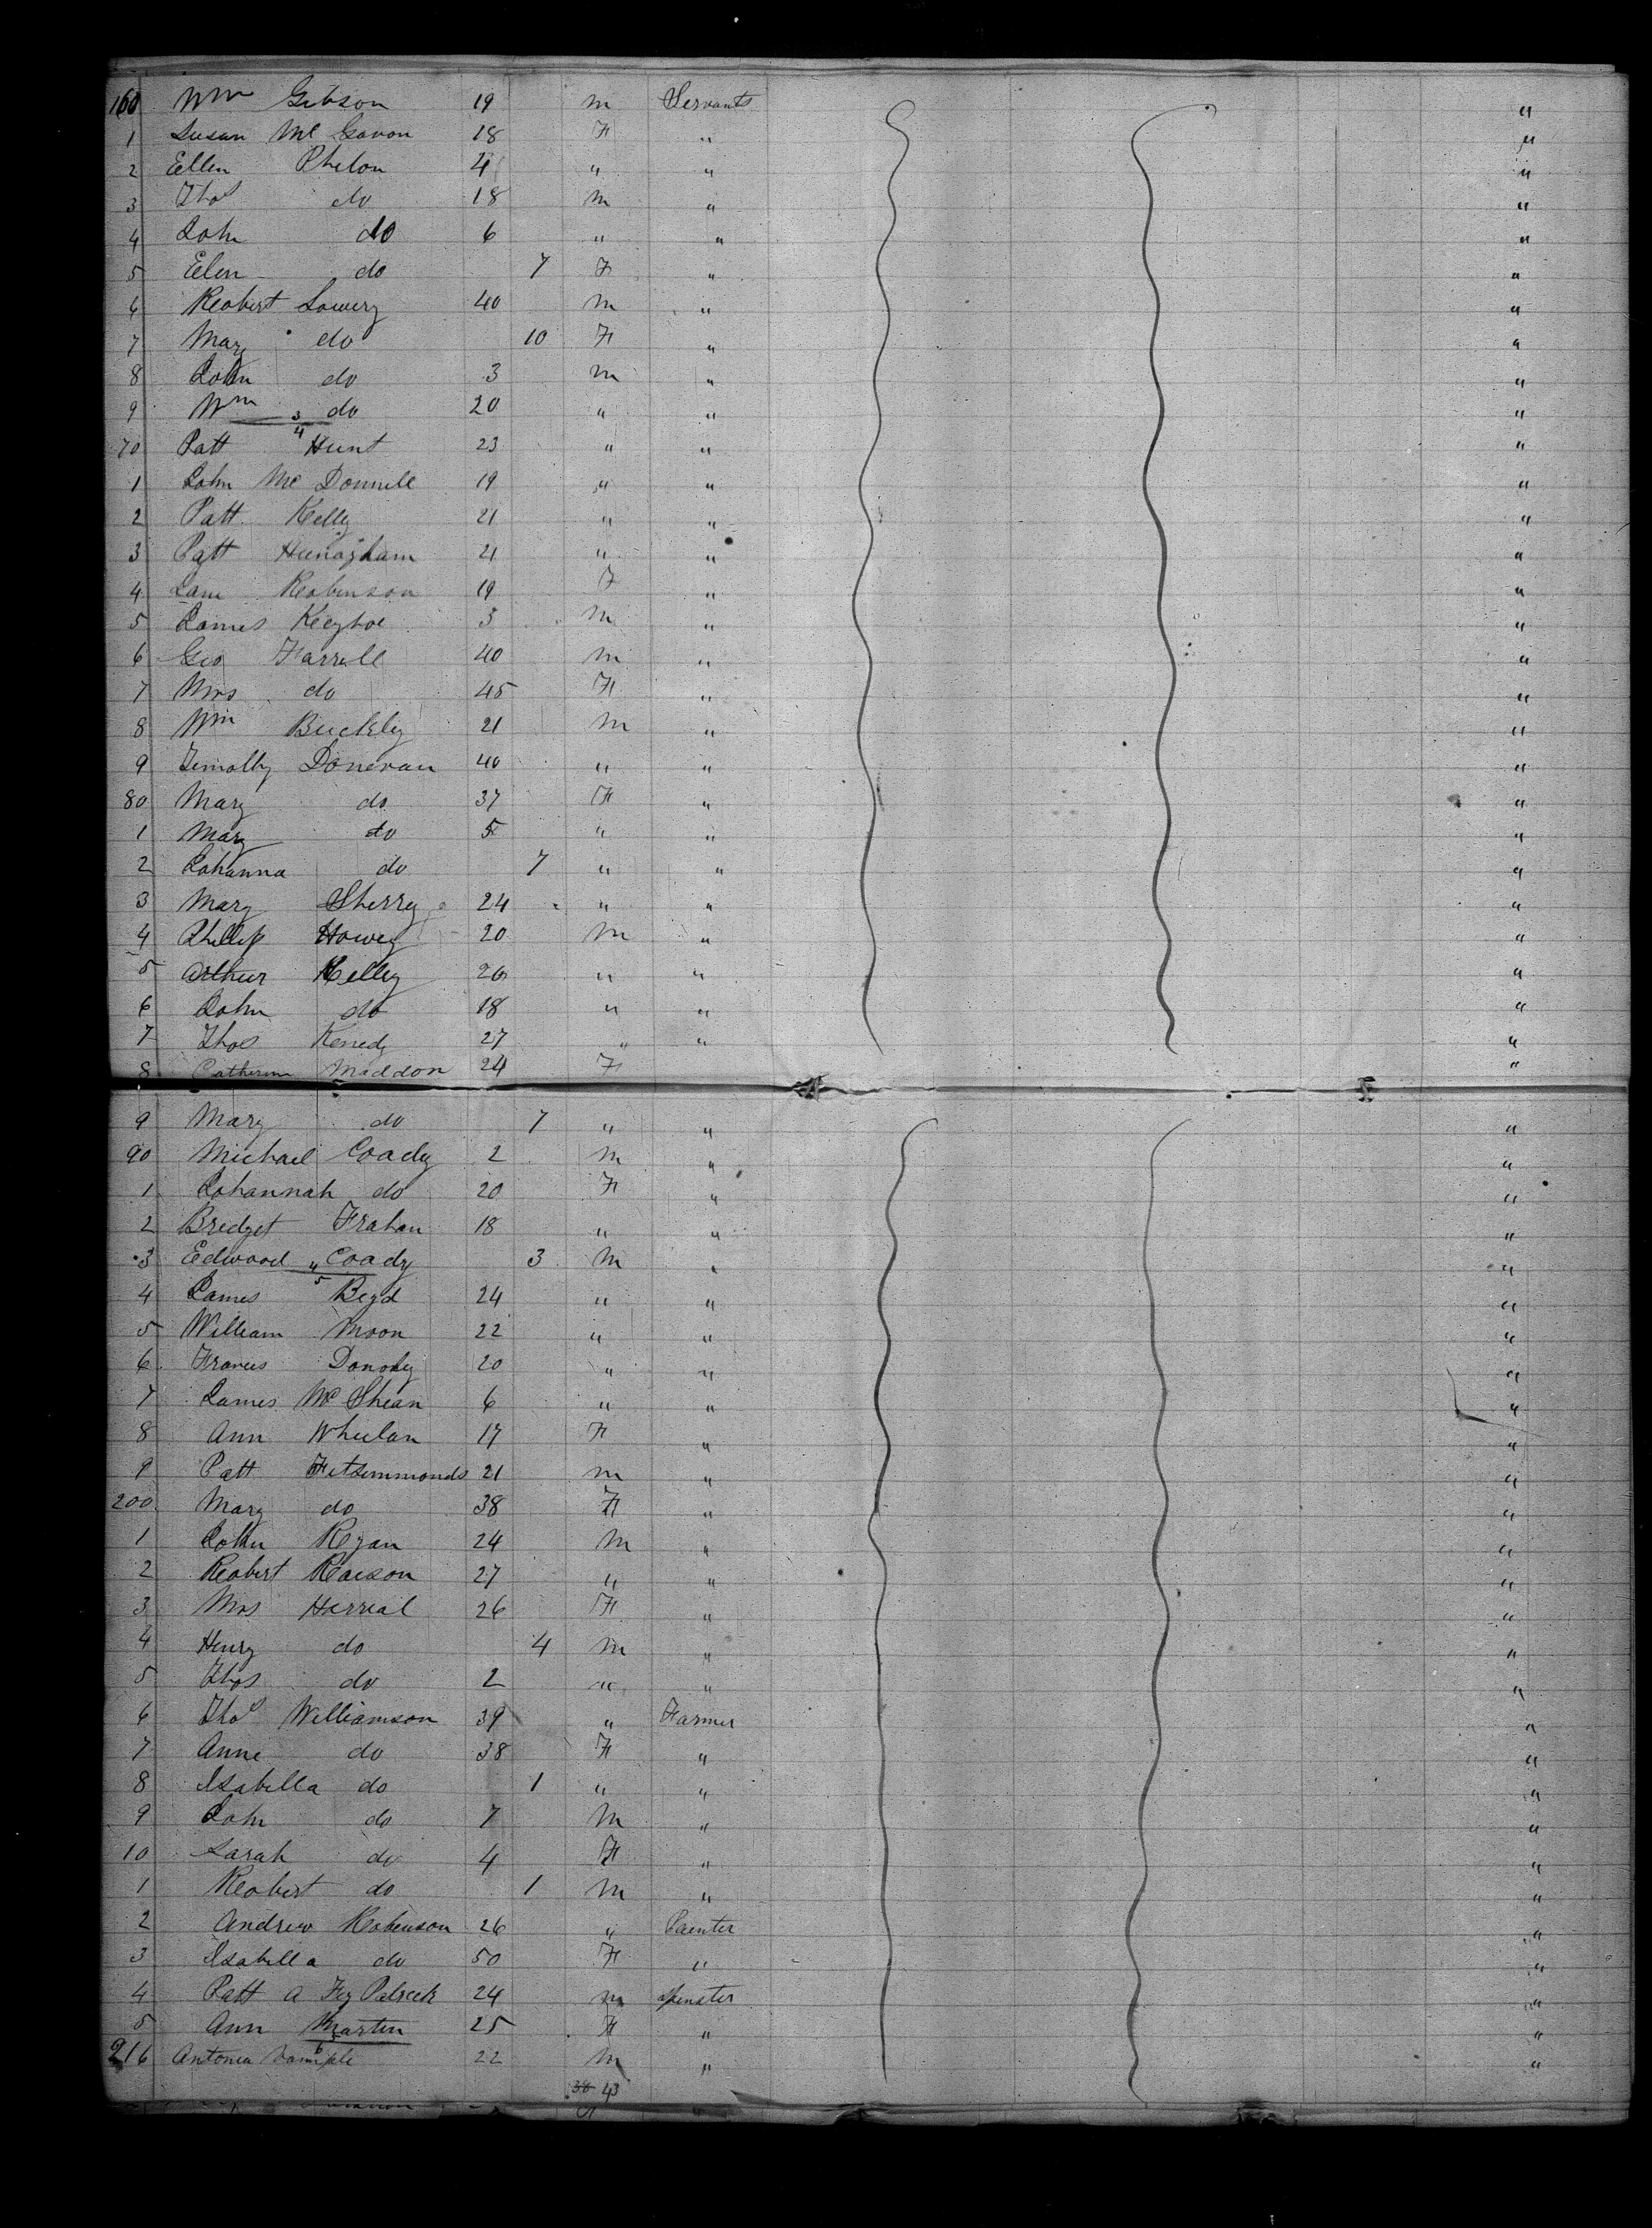 160 Wm Gibson 19 m Servants "
1 Susan Mc Gavon 18 F " "
2 Ellen Phelon 4 " " "
3 Thos do 18 m " "
4 John do 6 " " "
5 Elen do 7 F " "
6 Robert Lowery 40 m " "
7 Mary do 10 F " "
8 John do 3 m " "
9 Wm do 20 " " "
3
4
70 Patt Hunt 23 " " "
1 John Mc Donnell 19 " " "
2 Patt Kelly 21 " " "
3 Patt 21 " " "
4 Jane Robinson 19 F " "
5 James Keyhoe 3 m " "
6 Geo Farrell 40 m " "
7 Mrs do 45 F " "
8 Wm Buckley 21 m " "
9 Timothy Donevan 40 " " "
80 Mary do 37 F " "
1 Mary do 5 " " "
2 Johanna do 7 " " "
3 Mary Sherry 24 " " "
4 Phillip Howey 20 m " "
5 Arthur Kelley 26 " " "
6 John do 18 " " "
7 Thos Kenedy 27 " " "
8 Catherine Maddon 24 F "
9 Mary do 7 " " "
90 Michael Coady 2 m " "
1 Johannah do 20 F " "
2 Bredget Frahan 18 " " "
3 Edwood Coady 3 m " "
4
5
4 James Boyd 24 " " "
5 William Moon 22 " " "
6 Frances 20 " " "
7 James Mc Shean 6 " " "
8 Ann Wheelan 17 F " "
9 Patt Fitsimmonds 21 m " "
200 Mary do 38 F " "
1 John Ryan 24 m " "
2 Robert 27 " " "
3 Mrs Herreal 26 F " "
4 Henry do 4 m " "
5 Thos do 2 " " "
6 Thos Williamson 39 " Farmer "
7 Anne do 38 F " "
8 Isabella do 1 " " "
9 John do 7 m " "
10 Sarah do 4 F " "
1 Robert do 1 m " "
2 Andrew Robinson 26 " Painter "
3 Isabella do 50 F " "
4 Patt A Fiz Patrick 24 m spinster "
5 Ann Martin 25 F " "
6
216 Antonia 22 m " "
38 43